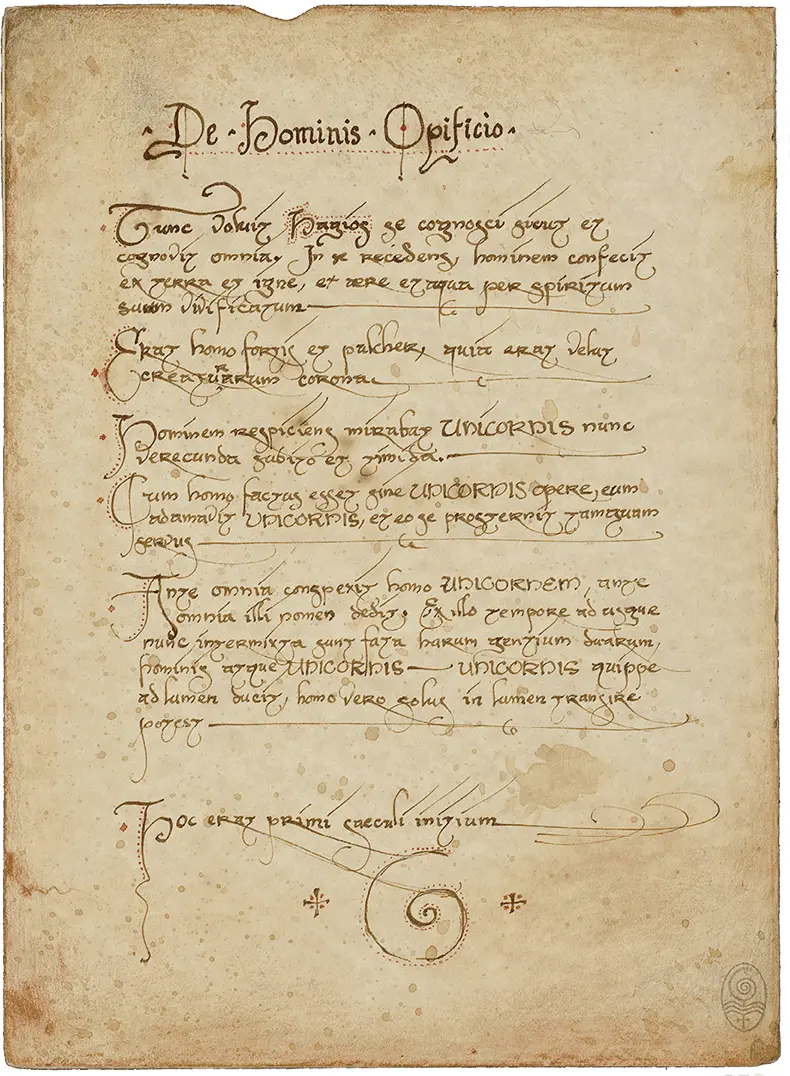 De · Hominis · Opificio ·
Tunc voluit Hagios se cognosci sicut et
cognovit omnia, In se recedens, hominem confecit
ex terra et igne, et aere et aqua per spiritum
suum vivificatum
Erat homo fortis et pulcher, quia erat velut
creaturarum corona.
Hominem respiciens mirabat UNICORNIS nunc
verecunda subito et timida.
Cum homo factus esset sine UNICORNIS opere, eum
adamavit UNICORNIS, et eo se prosternit tamquam
servus
Ante omnia conspexit homo UNICORNEM, ante
omnia illi nomen dedit; Ex illo tempore ad usque
nunc, intermixta sunt fata harum gentium duarum,
hominis atque UNICORNIS — UNICORNIS quippe
ad lumen ducit, homo vero solus in lumen transire
potest
Hoc erat primi saeculi initium